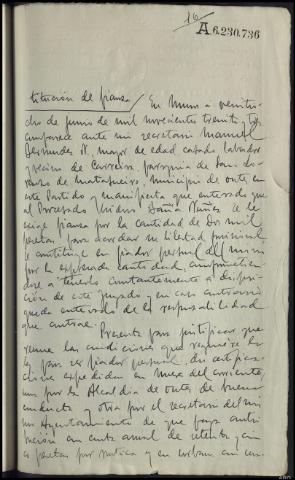 16
A.6.230.736
titución de fianza / En Muros a veintio-
cho de junio de mil novecientos treinta y tres
comparece ante mi secretario Manuel
Bermudez R. mayor de edad casado labrador
y vecino de Carreira, parroquia de San
de Matasueiro, municipio de Outes, en
este Partido y manifiesta que enterado que
al Procesado Isidro Núñez se le
exige fianza por la cantidad de Dos mil
pesetas para acordar su libertad provisional
se constituye en fiador personal del mismo
por la expresada cantidad, comprometien-
dose a tenerlo constantemente a disposi-
ción de este juzgado y en caso contrario
queda enterado de la responsabilidad
que contrae.
Presenta para justificar que
reune las condiciones que requiere la
ley para ser fiador personal, dos certifica-
ciones expedidas en mes del corriente,
una por la Alcaldia de Outes de buena
conducta y otra por el secretario del mis
mo Ayuntamiento de que paga contri
bución en cuota anual de
pesetas por rustica y en urbana con